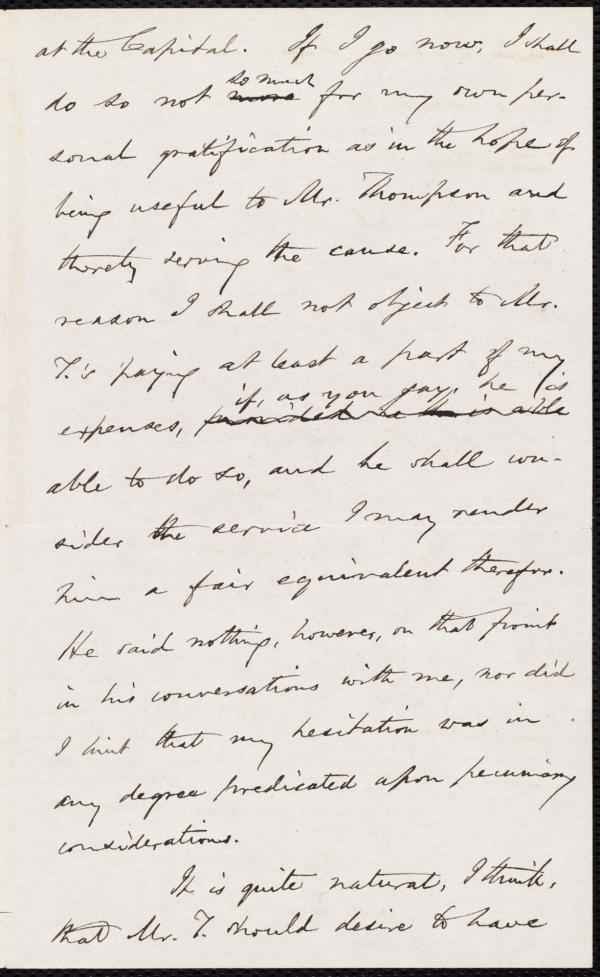 at the Capital. If I go now, I shall
so much
do so not more for my own per-
sonal gratification as in the hope of
being useful to Mr. Thompson and
thereby serving the cause. For that
reason I shall not object to Mr.
T.'s paying at least a part of my
if, as you say, he is
expenses, provided he is able
able to do so, and he shall con-
sider the service I may render
him a fair equivalent therefor.
He said nothing, however, on that point
in his conversations with me, nor did
I hint that my hesitation was in
any degree predicated upon pecuniary
considerations.
It is quite natural, I think,
that Mr. T. should desire to have